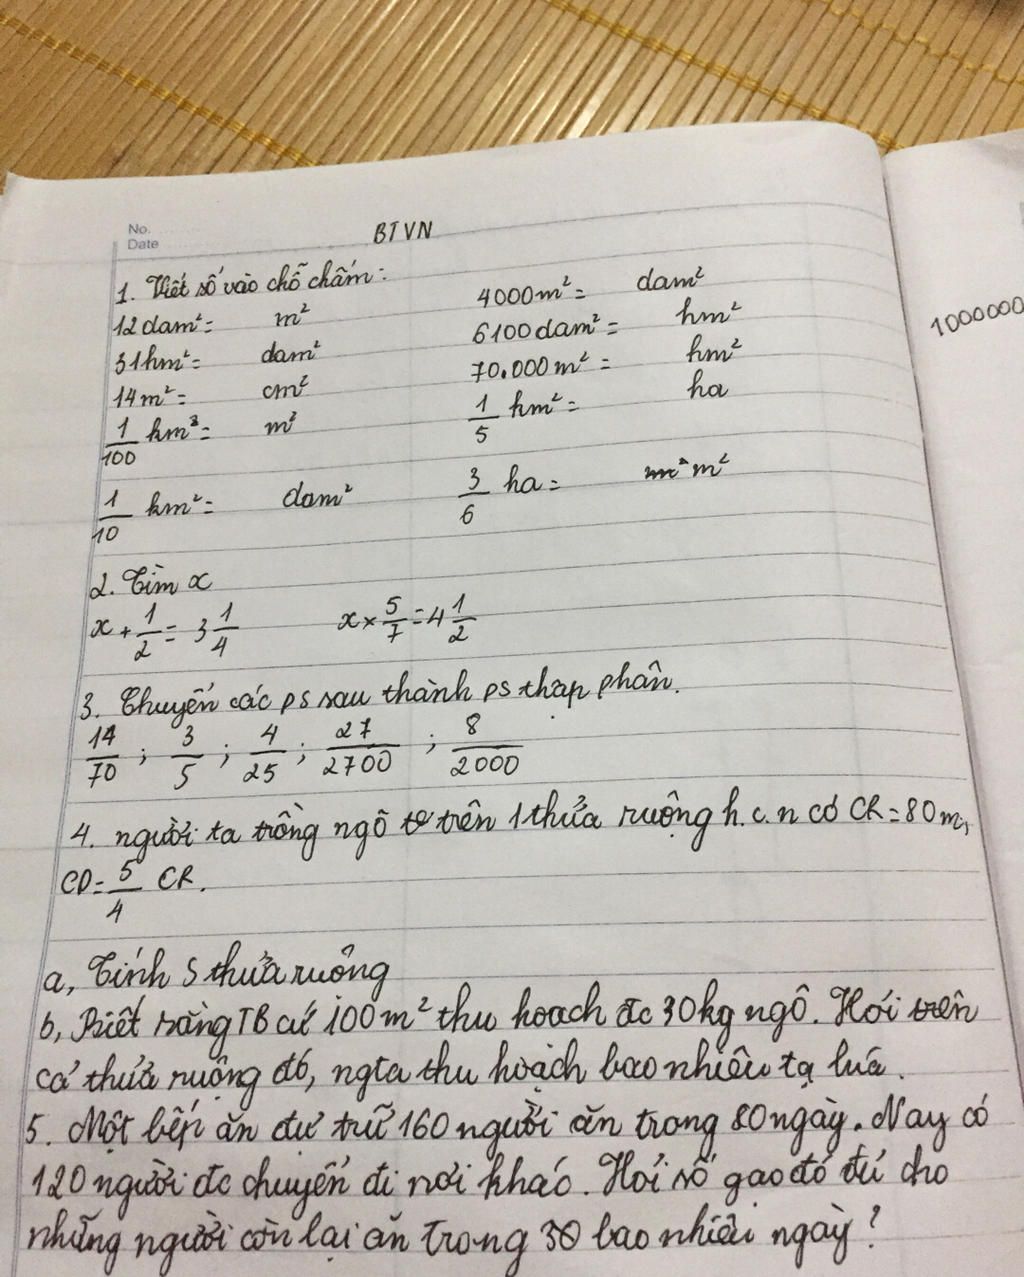 No.
Date
BTVN
1. Viết số vào chỗ chấm:
12dam²= m² 4000m²= dam²
31hm²= dam² 6100dam²= hm²
14m²= cm² 70.000m²= hm²
1/100 hm²= m² 1/5 hm²= ha
1/10 km²= dam² 3/6 ha= m² m²
2. Tìm x
x + 1/2 = 3 1/4 x × 5/7 = 4 1/2
3. Chuyển các ps sau thành ps thập phân.
14/70 ; 3/5 ; 4/25 ; 27/2700 ; 8/2000
4. người ta trồng ngô trên 1 thửa ruộng h.c.n có CR=80m,
CD= 5/4 CR.
a, Tính S thửa ruộng
b, Biết rằng TB cứ 100m² thu hoạch đc 30kg ngô. Hỏi trên
cả thửa ruộng đó, ngta thu hoạch bao nhiêu tạ lúa.
5. Một bếp ăn dự trữ 160 người ăn trong 80 ngày. Nay có
120 người đc chuyển đi nơi khác. Hỏi số gạo đó đủ cho
những người còn lại ăn trong 30 bao nhiêu ngày?
1000000